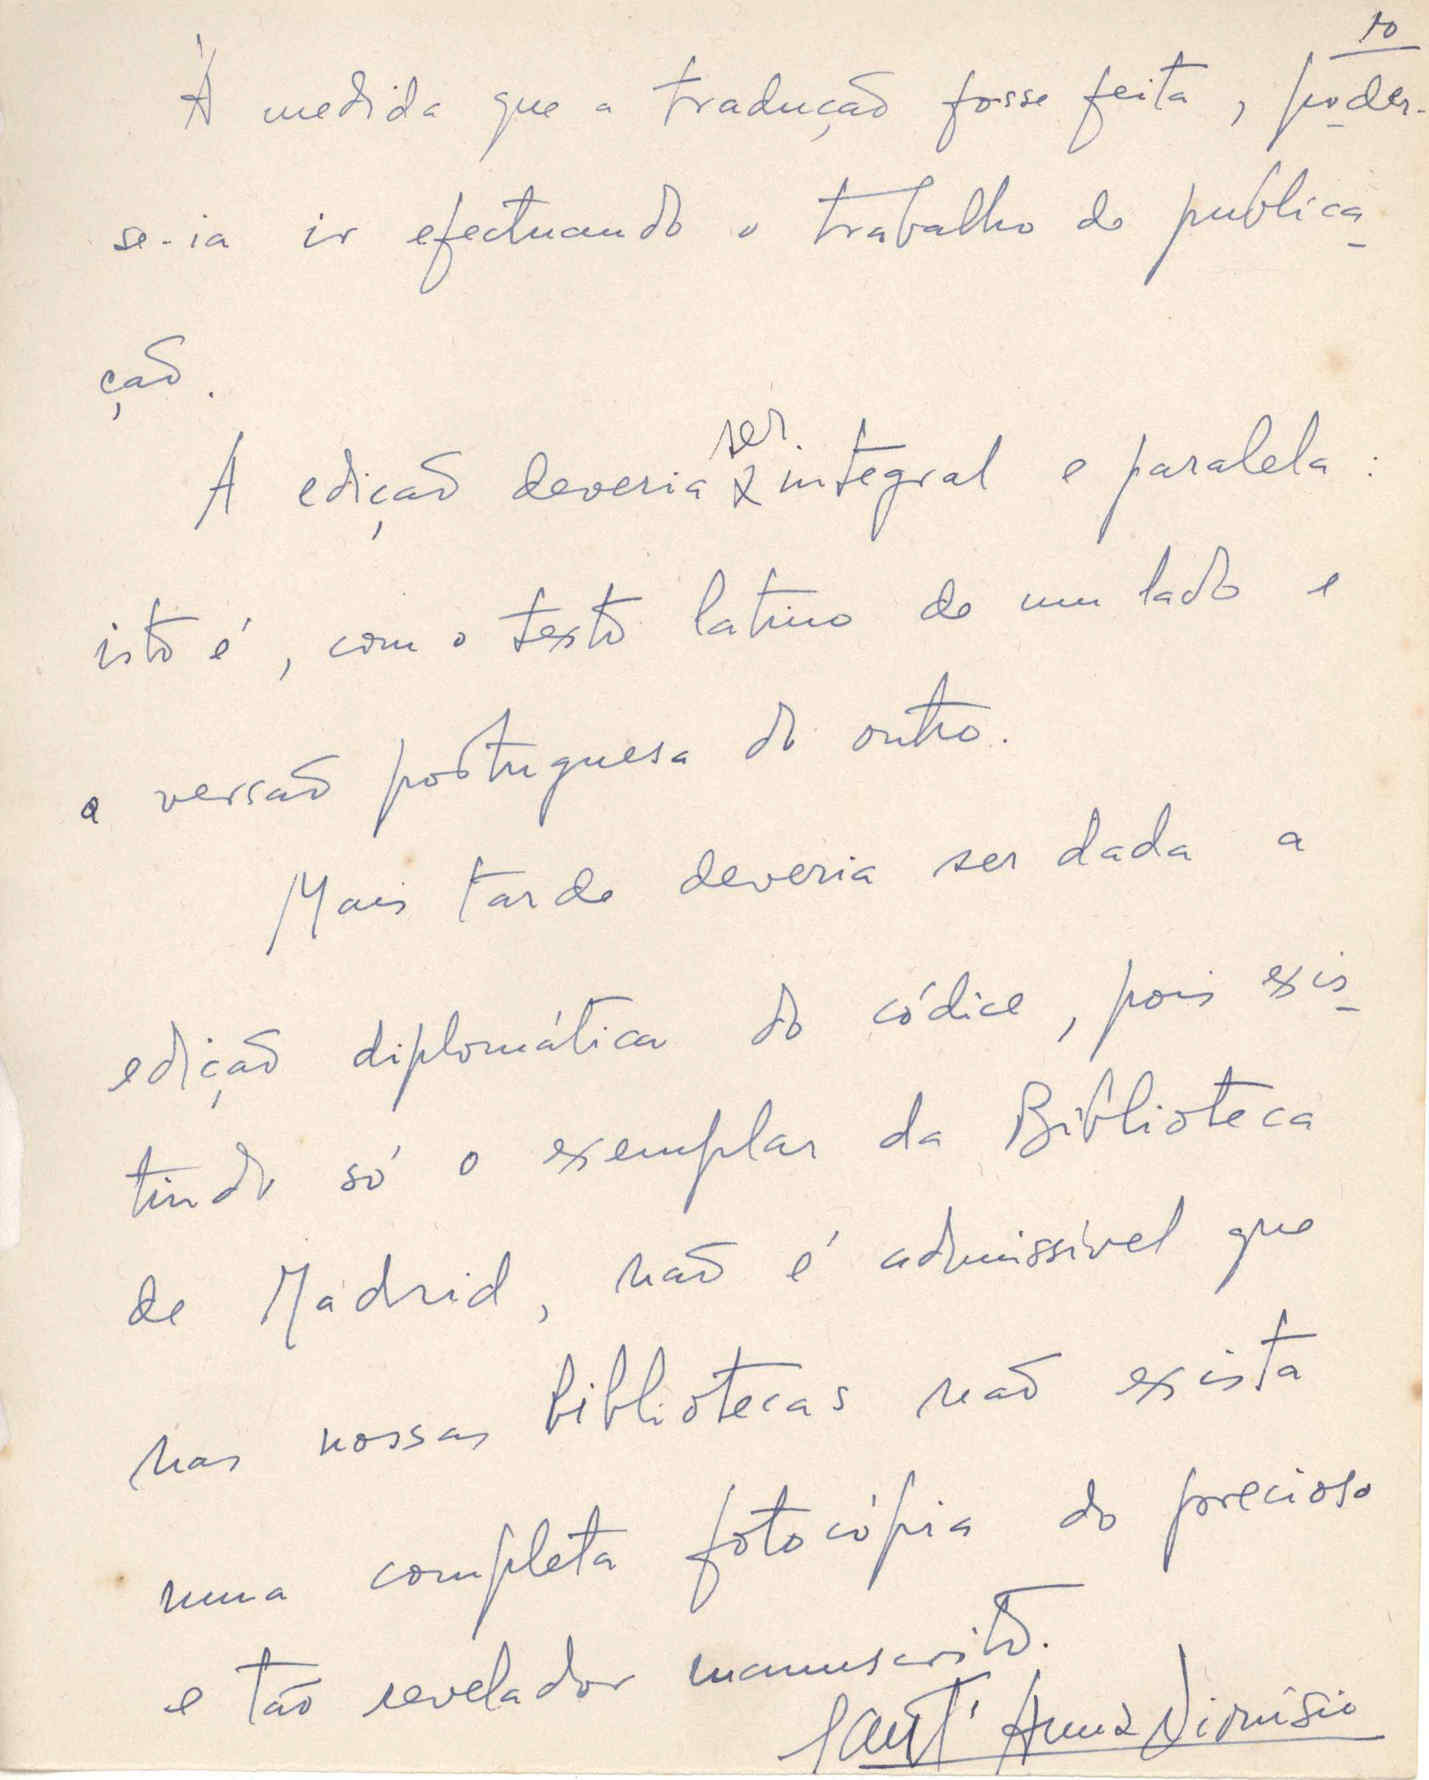 10
À medida que a tradução fosse feita, poder-
se-ia ir efectuando o trabalho de publica-
ção.
A edição deveria ser integral e paralela:
isto é, com o texto latino de um lado e
a versão portuguesa do outro.
Mais tarde deveria ser dada a
edição diplomática do códice, pois exis-
tindo só o exemplar da Biblioteca
de Madrid, não é admissível que
nas nossas bibliotecas não exista
uma completa fotocópia do precioso
e tão revelador manuscrito.
Sant'Anna Dionísio